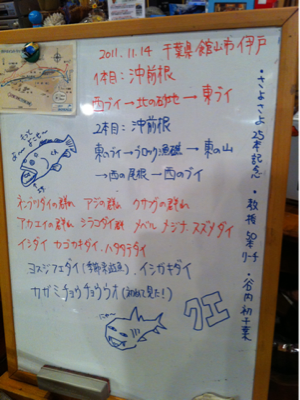 2011.11.14 千葉県館山市伊戸
1本目：沖前根
西ブイ→北の砂地→東ブイ
2本目：沖前根
東ブイ→ブロック漁礁→東の山
→西の尾根→西のブイ
ネンブツダイの群れ アジの群れ クサフグの群れ
アカエイの群れ シラコダイ群 メバル メジナ スズメダイ
イシダイ カゴカキダイ、ハタタテダイ
ヨスジフエダイ イシガキダイ
カガミチョウチョウウオ
クエ
25本記念
50本リーチ